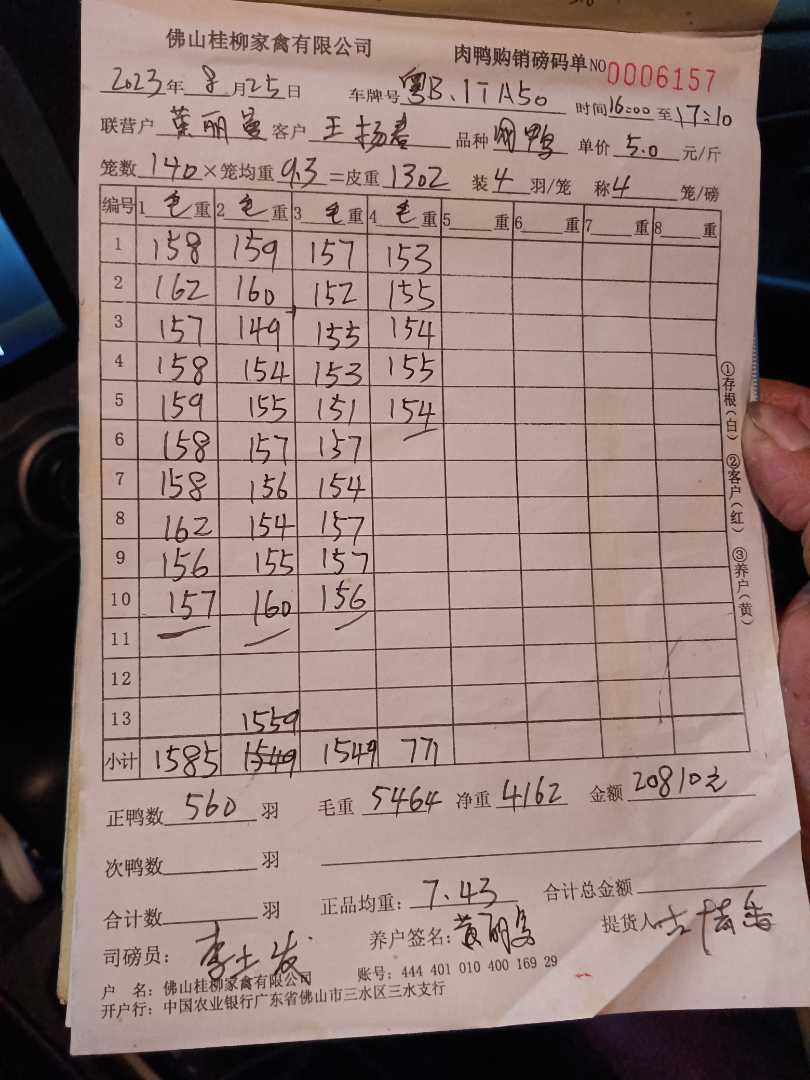 佛山桂柳家禽有限公司 肉鸭购销磅码单 NO 0006157
2023年 8月25日 车牌号 粤B.1TA50 时间 16:00 至 17:10
联营户 黄丽曼 客户 王杨春 品种 网鸭 单价 5.0 元/斤
笼数 140 × 笼均重 9.3 =皮重 1302 装 4 羽/笼 称 4 笼/磅
编号 1 毛 重 2 毛 重 3 毛 重 4 毛 重 5 重 6 重 7 重 8 重
1 158 159 157 153
2 162 160 152 155
3 157 149 155 154
4 158 154 153 155
5 159 155 151 154
6 158 157 157
7 158 156 154
8 162 154 157
9 156 155 157
10 157 160 156
11
12
13 1559
小计 1585 1549 1549 771
正鸭数 560 羽 毛重 5464 净重 4162 金额 20810元
次鸭数 羽
合计数 羽 正品均重: 7.43 合计总金额
司磅员: 李土发 养户签名: 黄丽曼 提货人
户 名: 佛山桂柳家禽有限公司 账号: 444 401 010 400 169 29
开户行: 中国农业银行广东省佛山市三水区三水支行
①存根(白) ②客户(红) ③养户(黄)